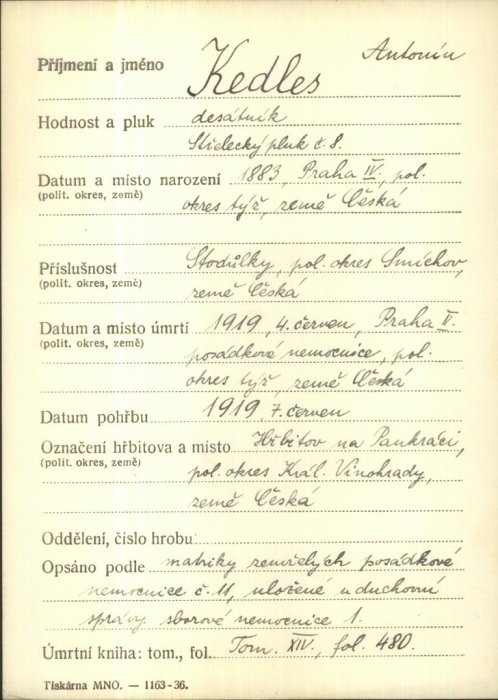 Příjmení a jméno Kedles Antonín
Hodnost a pluk desátník
Střelecký pluk č. 8.
Datum a místo narození 1883, Praha IV., pol.
(polit. okres, země) okres týž, země Česká
Příslušnost Stodůlky, pol. okres Smíchov,
(polit. okres, země) země Česká
Datum a místo úmrtí 1919, 4. červen, Praha II.
(polit. okres, země) posádková nemocnice, pol.
okres týž, země Česká
Datum pohřbu 1919 7. červen
Označení hřbitova a místo Hřbitov na Pankráci,
(polit. okres, země) pol. okres Král. Vinohrady,
země Česká
Oddělení, číslo hrobu:
Opsáno podle matriky zemřelých posádkové
nemocnice č. 11, uložené u duchovní
správy sborové nemocnice 1.
Úmrtní kniha: tom., fol. Tom. XIV, fol. 480.
Tiskárna MNO. — 1163-36.